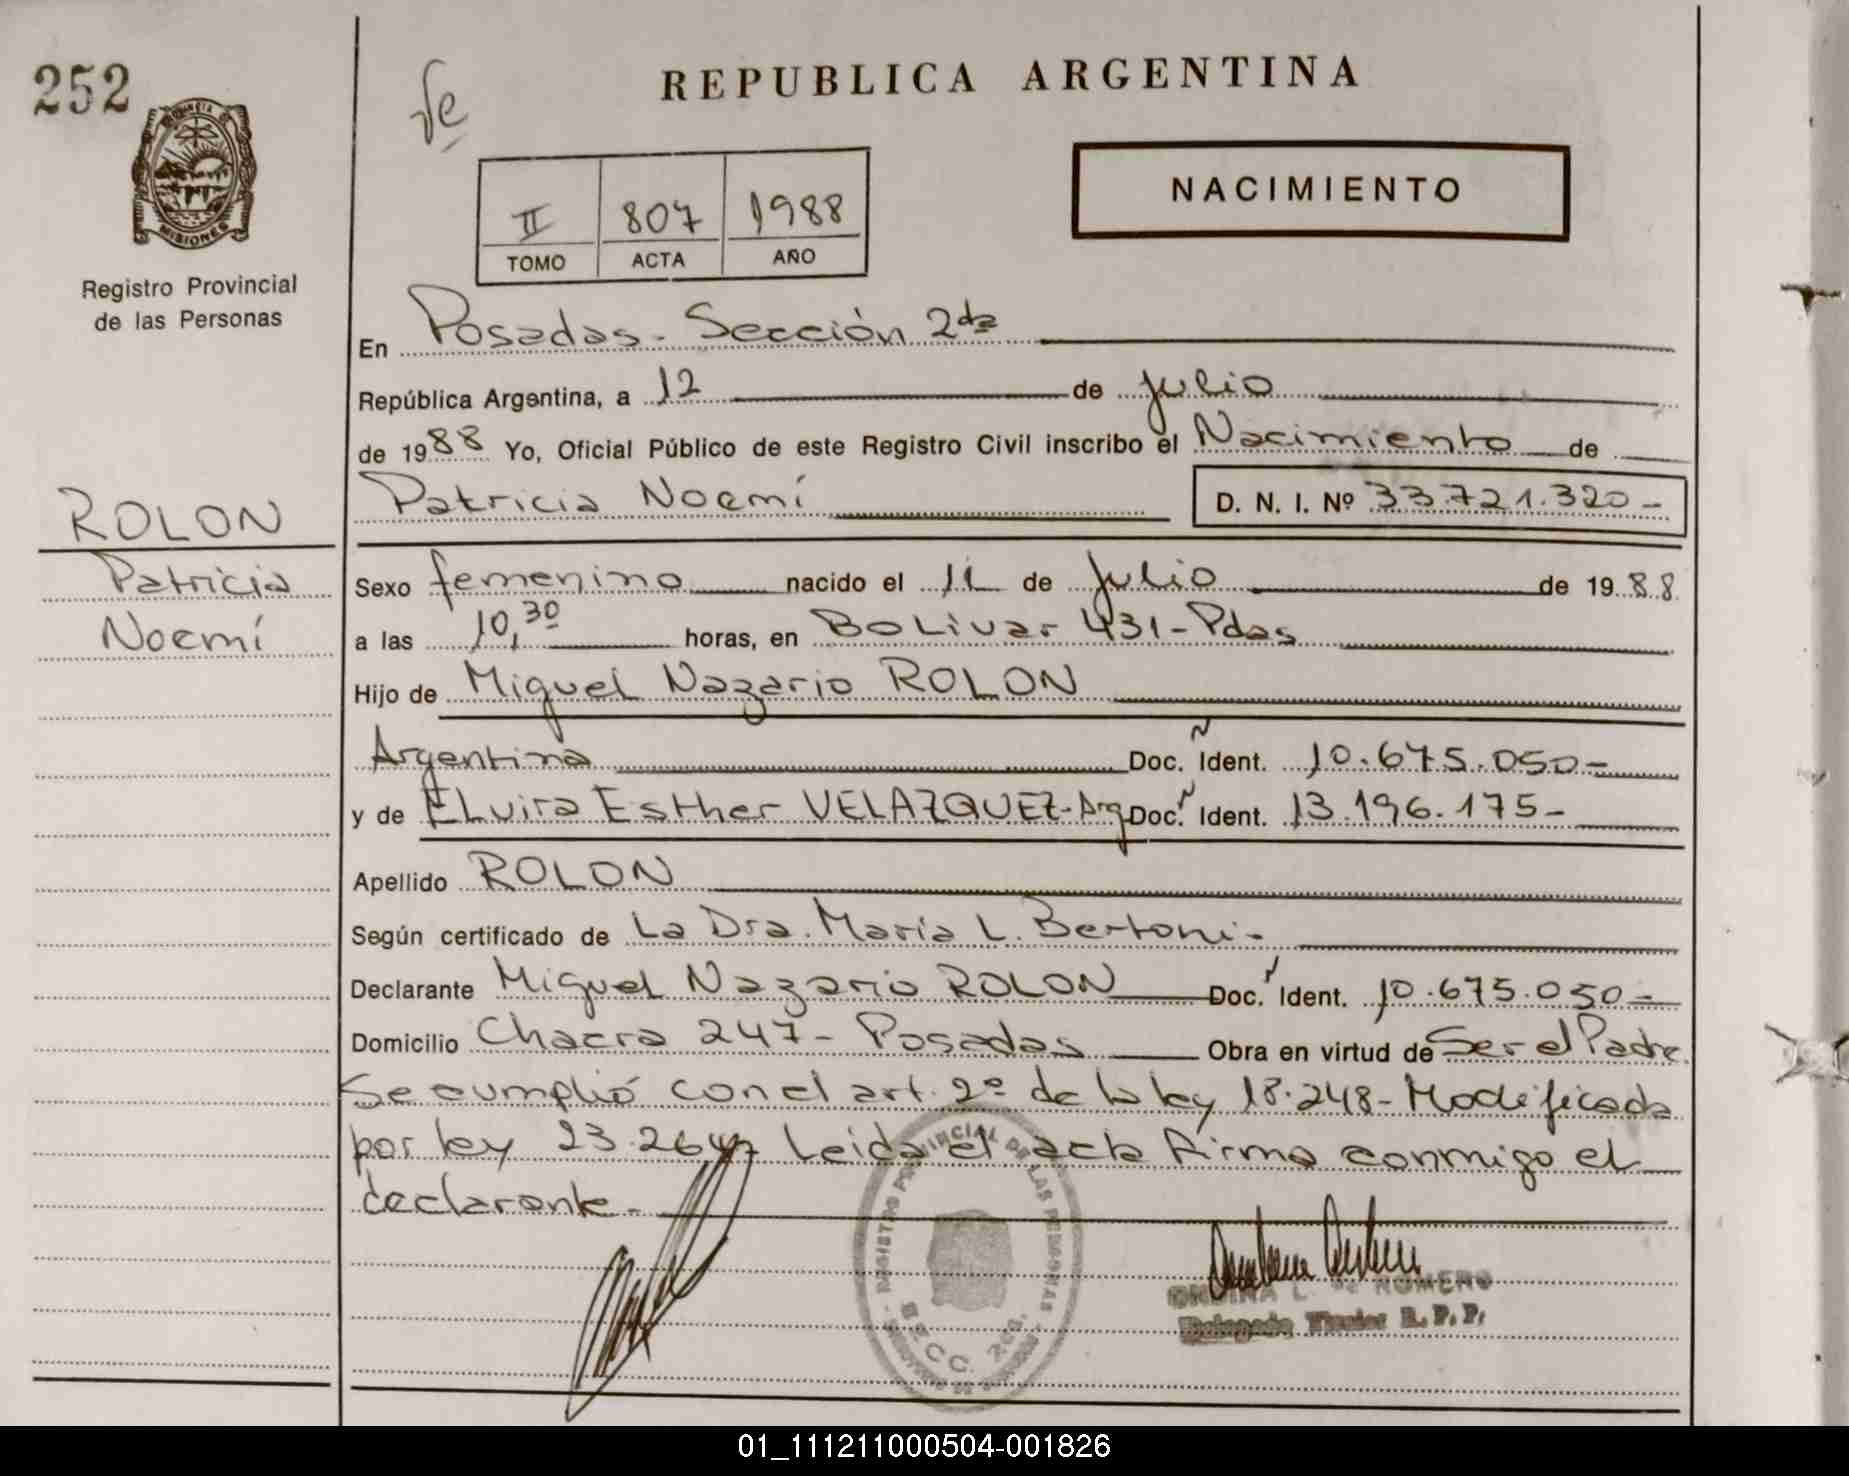 252
REPUBLICA ARGENTINA
NACIMIENTO
II 807 1988
TOMO ACTA AÑO
MISIONES
Registro Provincial
de las Personas
En Posadas - Sección 2da
República Argentina, a 12 de Julio
de 1988 Yo, Oficial Público de este Registro Civil inscribo el Nacimiento de
Patricia Noemí D. N. I. Nº 33.721.320-
ROLON
Patricia
Noemí
Sexo femenino nacido el 11 de Julio de 1988
a las 10,30 horas, en Bolivar 431-Pdas
Hijo de Miguel Nazario ROLON
Argentina Doc. N Ident. 10.675.050-
y de Elvira Esther VELAZQUEZ-Arg Doc. N Ident. 13.196.175-
Apellido ROLON
Según certificado de La Dra. María L. Bertoni-
Declarante Miguel Nazario ROLON Doc. N Ident. 10.675.050-
Domicilio Chacra 247- Posadas Obra en virtud de Ser el Padre
Se cumplió con el art. 2º de la ley 18.248- Modificada
por ley 23.264 Leida el acta firma conmigo el
declarante.-
REGISTRO PROVINCIAL DE LAS PERSONAS
SECC. 2da.
L. de ROMERO
Delegada Titular R. P. P.
01_111211000504-001826